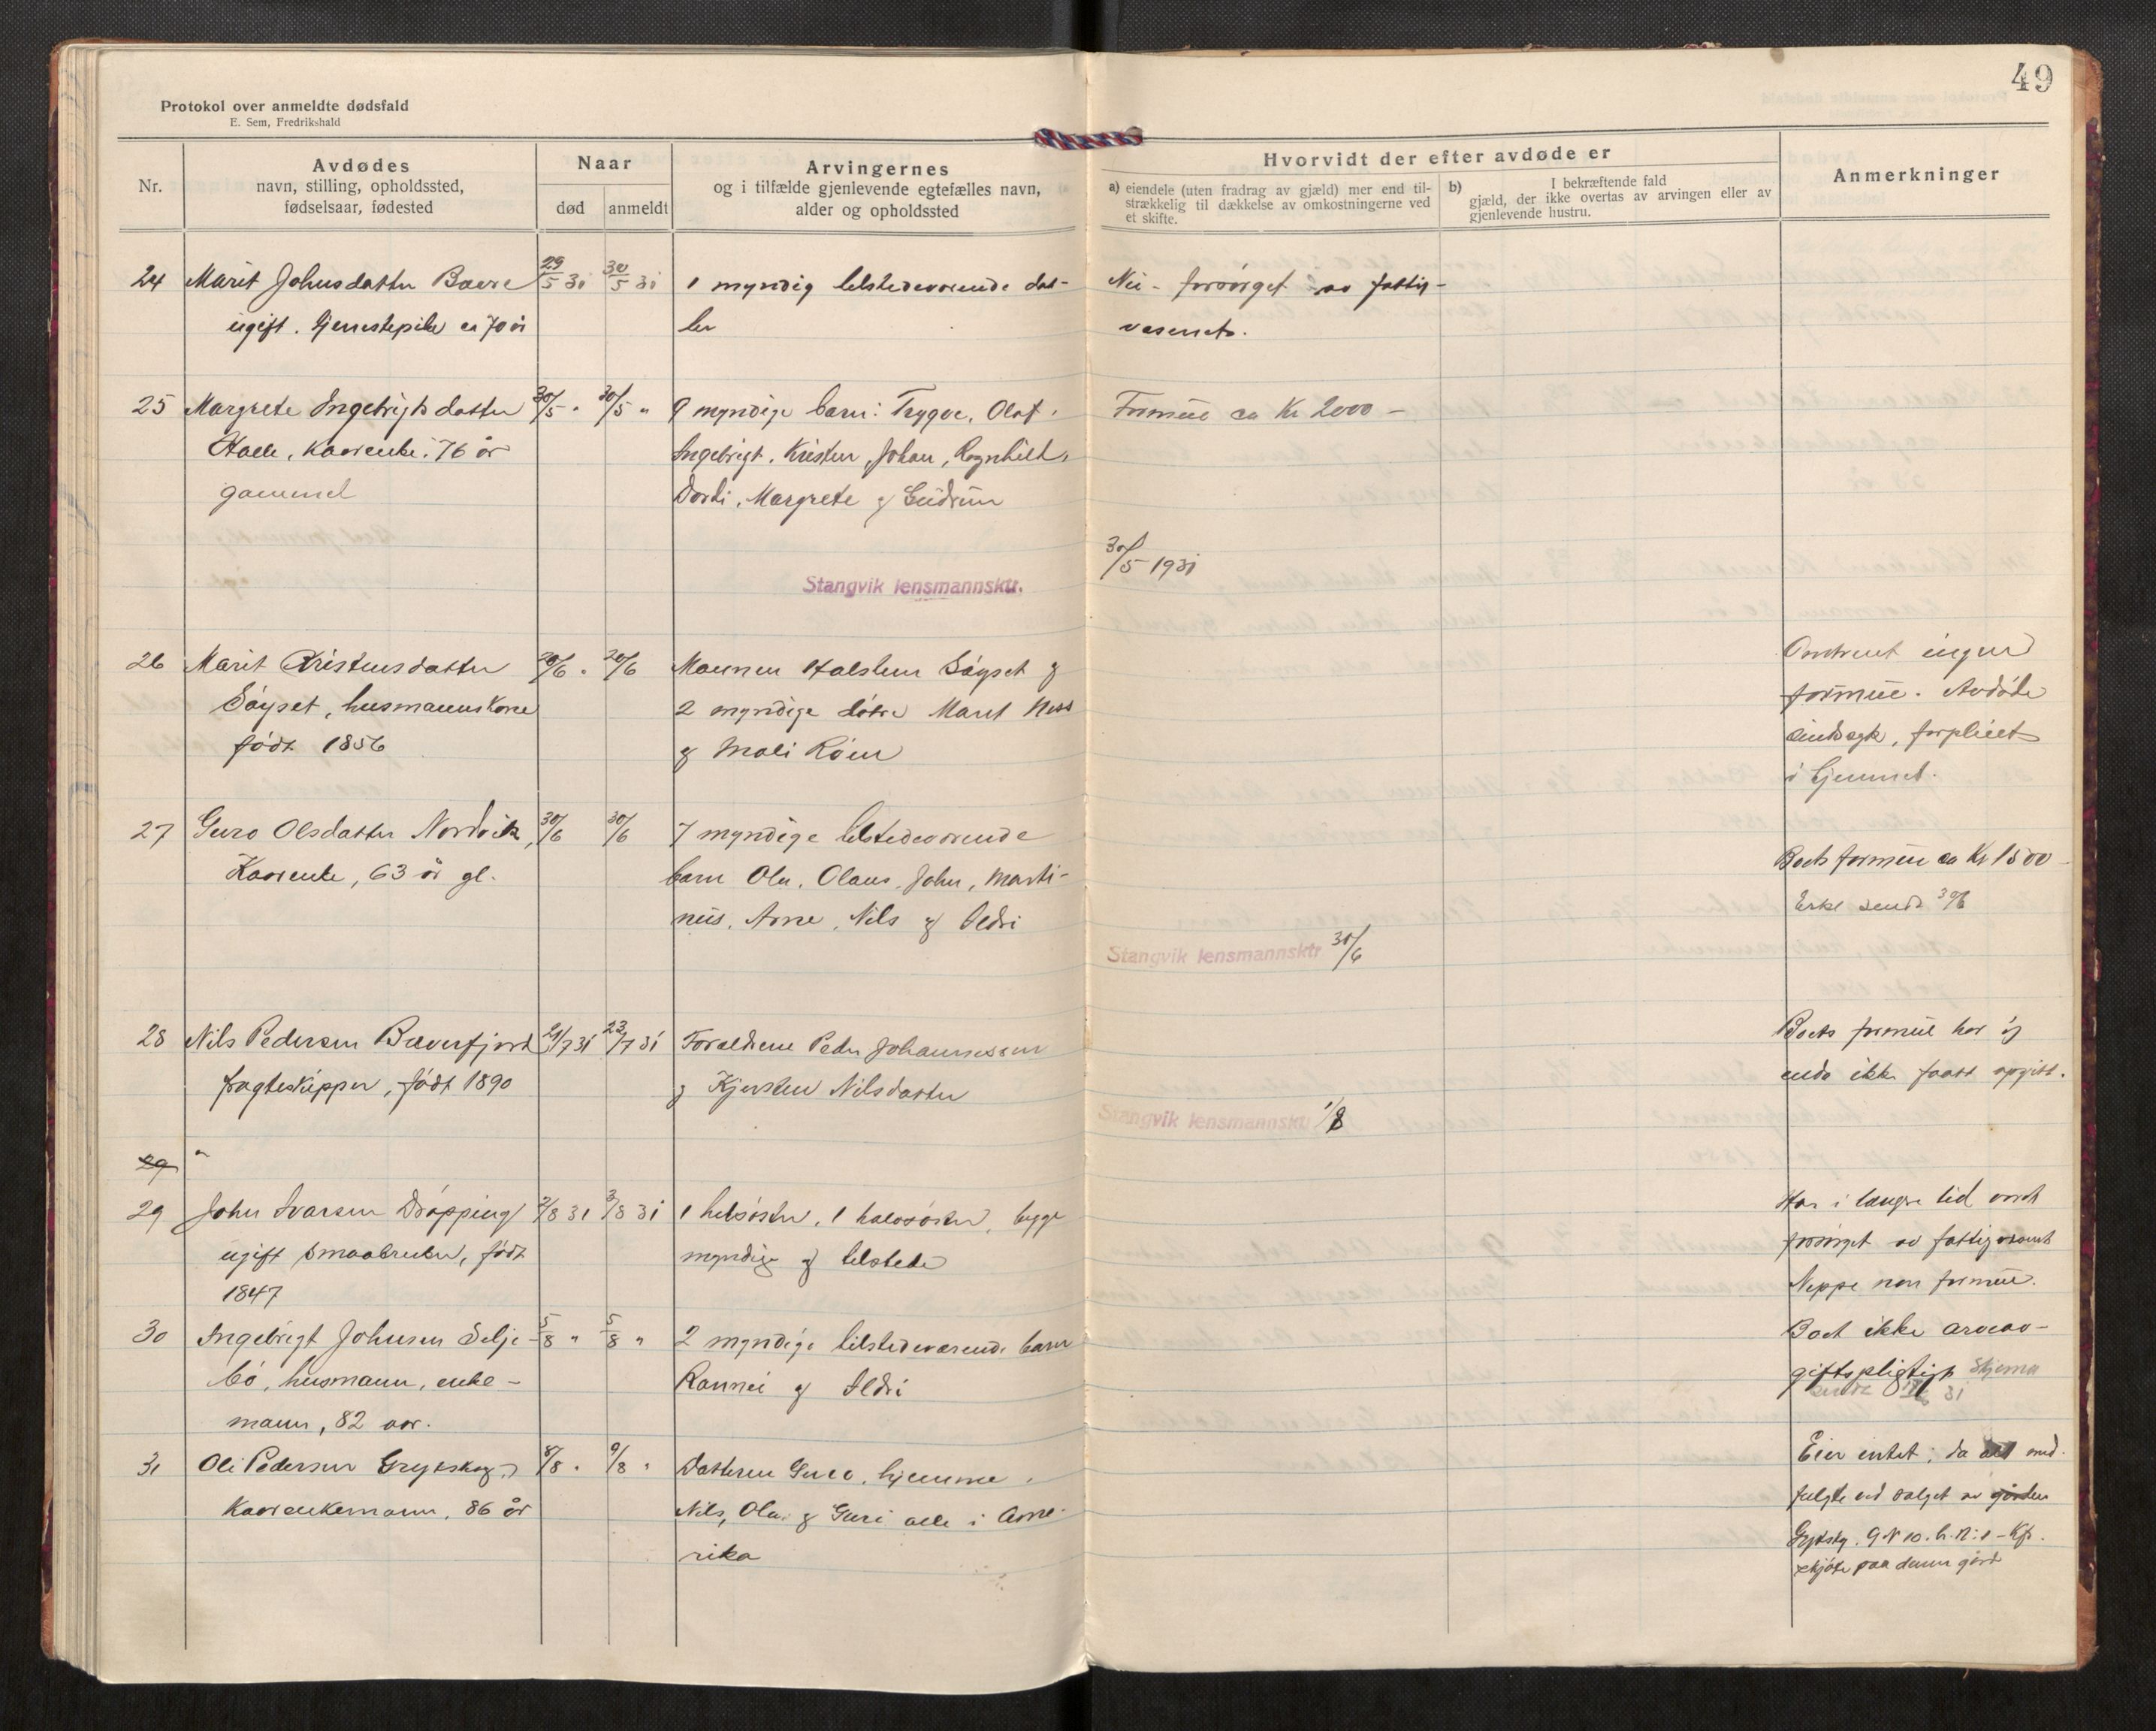 49
Protokol over anmeldte dødsfald
E. Sem, Fredrikshald
Nr.
Avdødes
navn, stilling, opholdssted,
fødselsaar, fødested
Naar
død
anmeldt
Arvingernes
og i tilfælde gjenlevende egtefælles navn,
alder og opholdssted
Hvorvidt der efter avdøde er
a) eiendele (uten fradrag av gjæld) mer end til-
strækkelig til dækkelse av omkostningerne ved
et skifte.
b) I bekræftende fald
gjæld, der ikke overtas av arvingen eller av
gjenlevende hustru.
Anmerkninger
24 Marit Johnsdatter Bævre 29/5 31 30/5 31 1 myndig tilstedeværende dat- Nei - forsørget av fattig-
ugift. tjenestepike ca 70 år ter vesenet.
25 Margrete Ingebrigtsdatter 30/5 " 30/5 " 9 myndige barn: Trygve, Olaf, Formue ca Kr 2000 -
Halle, kaarenke, 76 år Ingebrigt, Kristen, Johan, Ragnhild,
gammel Dordi, Margrete og Gudrun
30/5 1931
Stangvik lensmannsktr.
26 Marit Kristensdatter 20/6 " 20/6 Mannen Halsten Søyset og Omtrent ingen
Søyset, husmannskone 2 myndige døtre Marit Ness formue. Avdøde
født 1856 og Mali Røen sindsyk, forpleiet
i hjemmet.
27 Guro Olsdatter Nordvik, 30/6 30/6 7 myndige tilstedeværende Boets formue ca Kr 1500 -
Kaarenke, 63 år gl. barn Ola, Olaus, John, Marti- Erkl sendt 30/6
nus, Arne, Nils og Sedri
Stangvik lensmannsktr 30/6
28 Nils Pedersen Bæverfjord 21/7 31 23/7 31 Forældrene Peder Johannessen Boets formue har jeg
fragteskipper, født 1890 og Kjersten Nilsdatter enda ikke faatt opgitt.
Stangvik lensmannsktr 1/8
29 "
29 John Ivarsen Drøpping 2/8 31 3/8 31 1 helsøster, 1 halvsøster, begge Har i længre tid vært
ugift smaabruker, født myndige og tilstede forsørget av fattigvesenet
1847 Neppe noen formue.
30 Ingebrigt Johnsen Selje- 5/8 " 5/8 " 2 myndige tilstedeværende barn Boet ikke arveav-
bø, husmann, enke- Rannei og Sedri giftspligtig. Skjema
mann, 82 aar. sendt 31
31 Ole Pedersen Grytskog, 8/8 " 9/8 " Datteren Guro, hjemme, Eier intet; da alt med-
Kaarenkemann, 86 år Nils, Ola, og Guri alle i Ame- fulgte ved salget av gården
rika Grytskog. G.N 10. b.n: 1 - Kfr.
skjøte paa denne gård